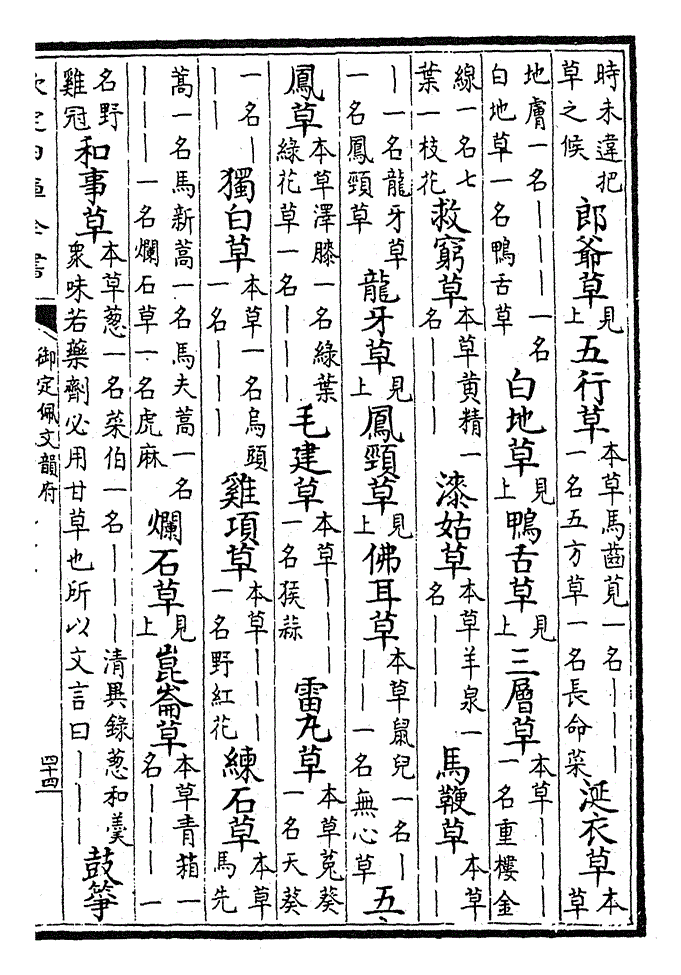 時未違把草之候 郎爺草 見上 五行草 本草馬齒莧一名｜｜｜一名五方草一名長命菜 涎衣草 本草
地膚一名｜｜｜一名白地草一名鴨舌草 白地草 見上 鴨舌草 見上 三層草 本草｜｜｜一名重樓金
線一名七葉一枝花 救窮草 本草黃精一名｜｜｜ 漆姑草 本草羊泉一名｜｜｜ 馬鞭草 本草｜｜
｜一名龍牙草一名鳳頸草 龍牙草 見上 鳳頸草 見上 佛耳草 本草鼠兒一名｜｜｜一名無心草 五
鳳草 本草澤膝一名綠葉綠花草一名｜｜｜ 毛建草 本草｜｜｜一名猴蒜 雷丸草 本草菟葵一名天葵
一名｜｜｜ 獨白草 本草一名烏頭一名｜｜｜ 雞項草 本草｜｜｜一名野紅花 練石草 本草馬先
蒿一名馬新蒿一名馬夫蒿一名｜｜｜一名爛石草一名虎麻 爛石草 見上 崑崙草 本草青葙一名｜｜｜一
名野雞冠 和事草 本草葱一名菜伯一名｜｜｜清異錄葱和羹衆味若藥劑必用甘草也所以文言曰｜｜｜ 鼓箏
欽定四庫全書
御定佩文韻府
四十四